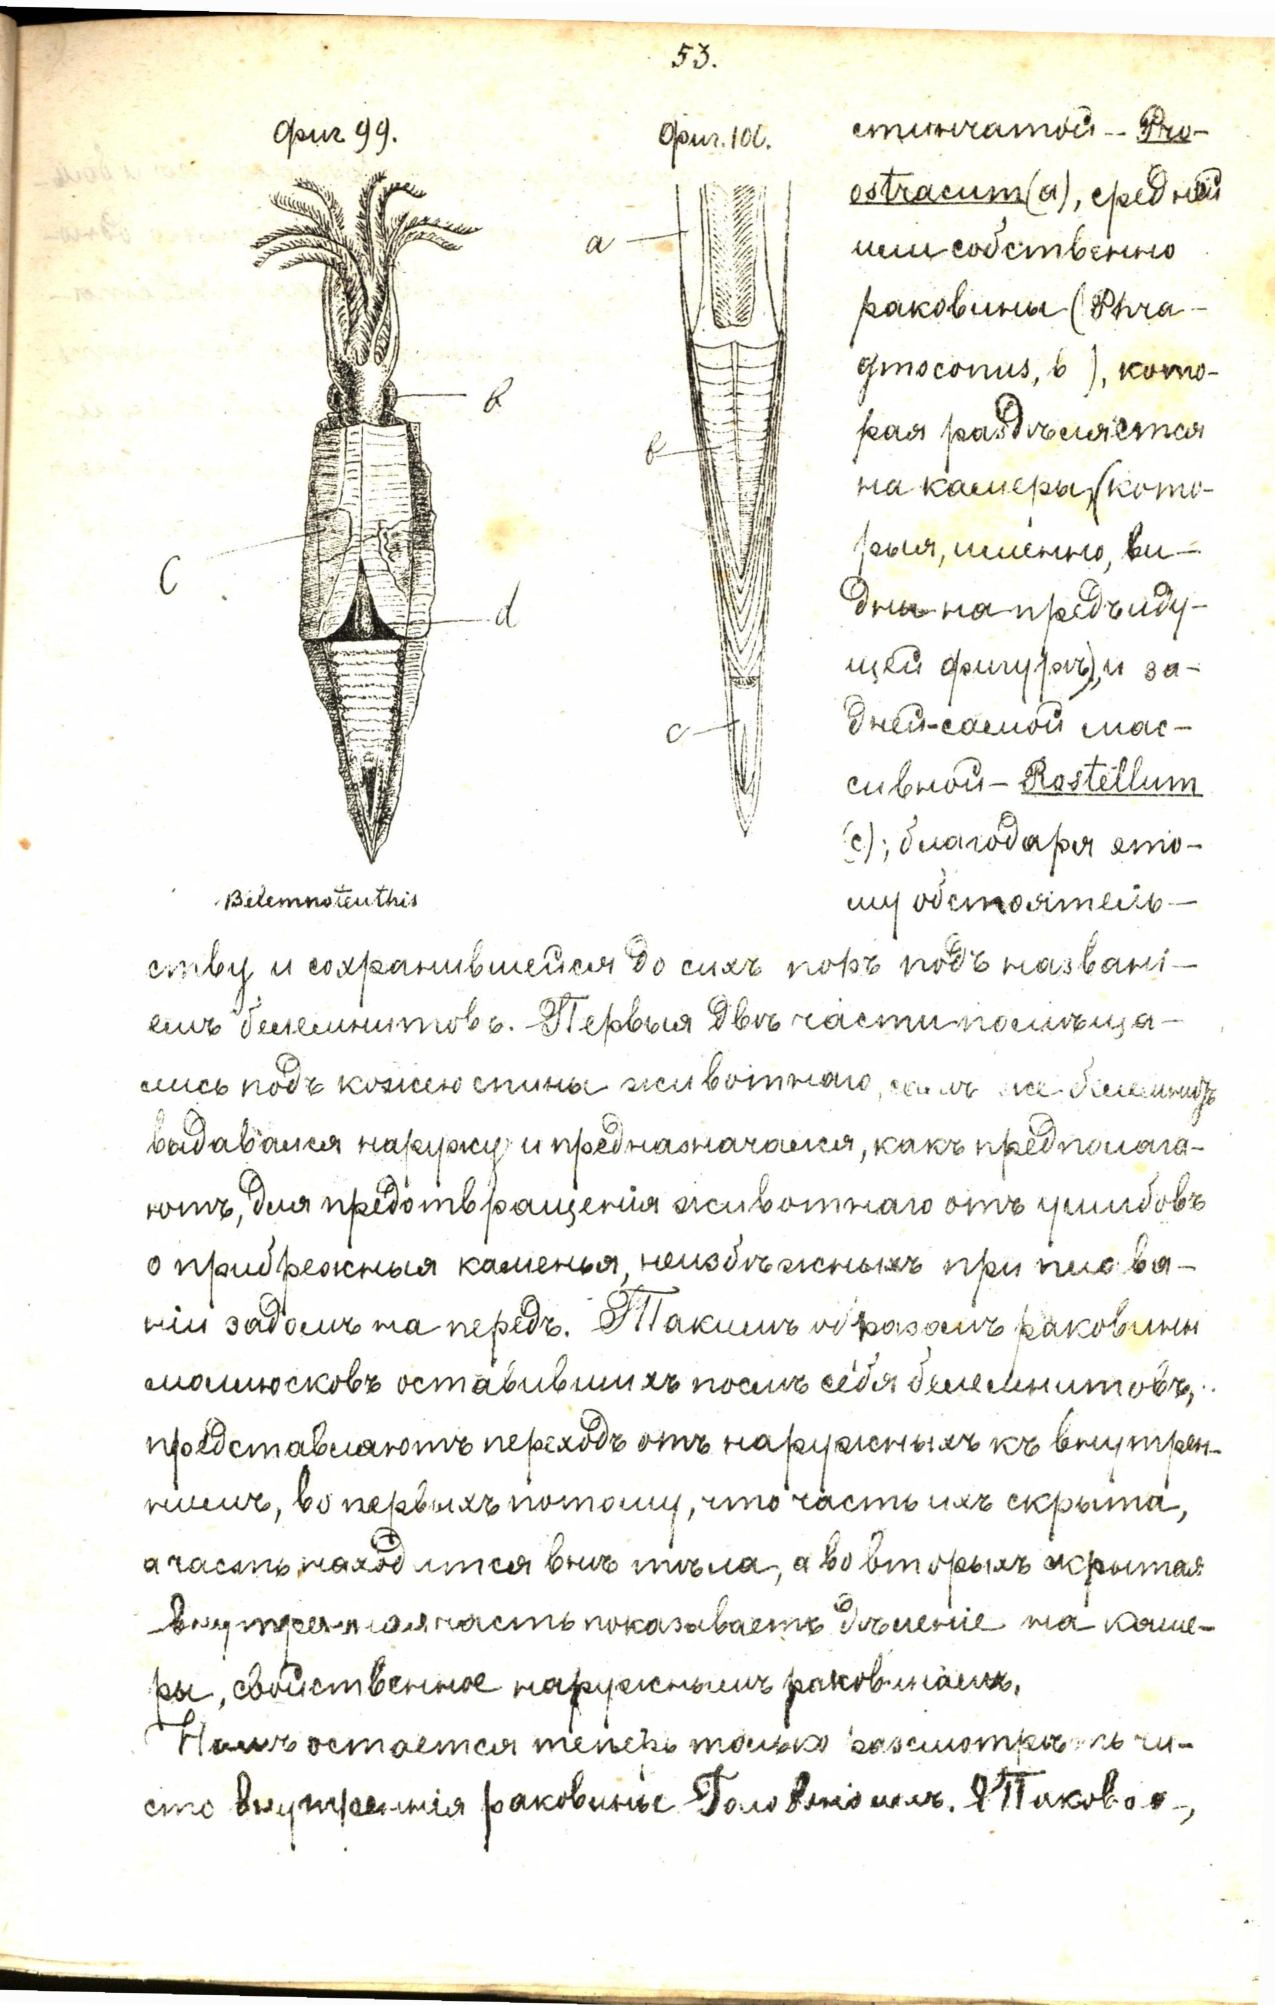 53.
фиг 99.
фиг. 10
a
b
b
c
d
c
Belemnoteuthis
стинчатой — Pro-
ostracum (a), средней
или собственно
раковины (Phra-
gmoconus, b), кото-
рая раздѣляется
на камеры, (кото-
рыя, именно, ви-
дны на предъиду-
щей фигурѣ), и за-
дней - самой мас-
сивной — Rostellum
(c); благодаря это-
му обстоятель-
ству и сохранившейся до сихъ поръ подъ названі-
емъ белемнитовъ. Первыя двѣ части помѣща-
лись подъ кожею спины животнаго, самъ же белемнитъ
выдавался наружу и предназначался, какъ предполага-
ютъ, для предотвращенія животнаго отъ ушибовъ
о прибрежныя каменья, неизбѣжныхъ при плава-
ніи задомъ на передъ. Такимъ образомъ раковины
моллюсковъ оставившихъ послѣ себя белемнитовъ,
представляютъ переходъ отъ наружныхъ къ внутрен-
нимъ, во первыхъ потому, что часть ихъ скрыта,
а часть находится внѣ тѣла, а во вторыхъ скрытая
внутренняя часть показываетъ дѣленіе на каме-
ры, свойственное наружнымъ раковинамъ.
Намъ остается теперь только разсмотрѣть чи-
сто внутреннія раковины Головоногихъ.